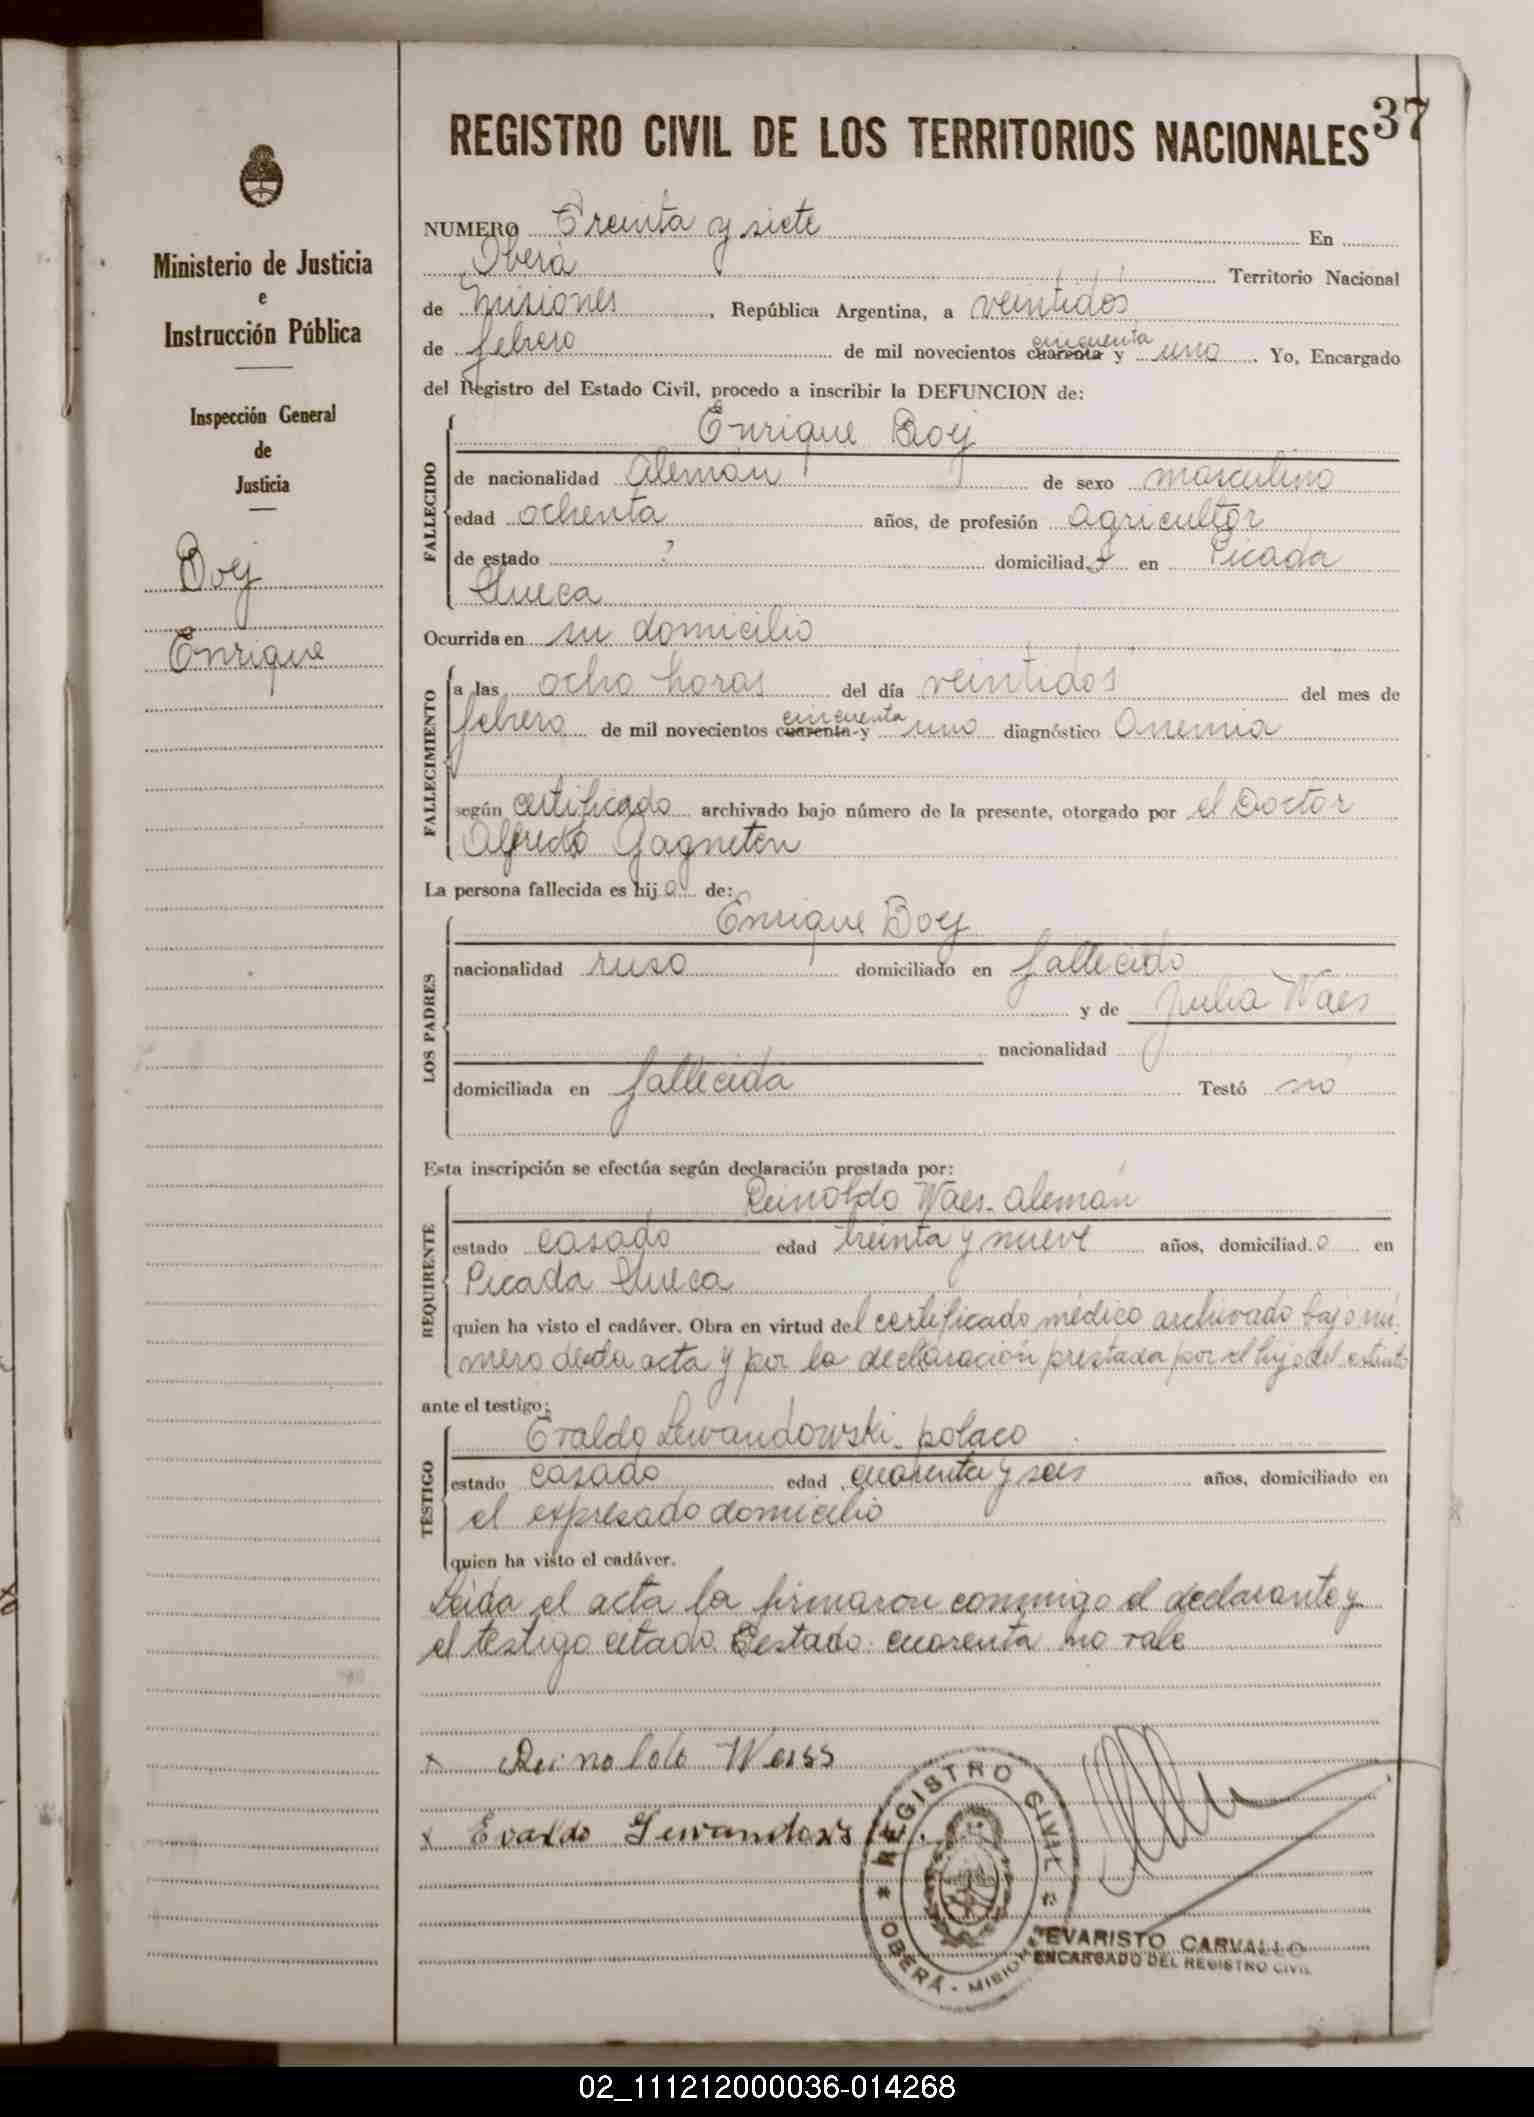 37
REGISTRO CIVIL DE LOS TERRITORIOS NACIONALES
Ministerio de Justicia
e
Instrucción Pública
Inspección General
de
Justicia
Boy
Enrique
NUMERO Treinta y siete En
Oberá Territorio Nacional
de Misiones, República Argentina, a veintidos
de febrero de mil novecientos cuarenta cincuenta y uno. Yo, Encargado
del Registro del Estado Civil, procedo a inscribir la DEFUNCION de:
Enrique Boy
FALLECIDO
de nacionalidad alemán de sexo masculino
edad ochenta años, de profesión agricultor
de estado ? domiciliad en Picada
Sueca
Ocurrida en su domicilio
FALLECIMIENTO
a las ocho horas del día veintidos del mes de
febrero de mil novecientos cuarenta cincuenta y uno diagnóstico Anemia
según certificado archivado bajo número de la presente, otorgado por el Doctor
Alfredo Gagneten
La persona fallecida es hijo de:
Enrique Boy
LOS PADRES
nacionalidad ruso domiciliado en fallecido
y de Julia Waes
nacionalidad
domiciliada en fallecida Testó no
Esta inscripción se efectúa según declaración prestada por:
Reinoldo Waes. alemán
REQUIRENTE
estado casado edad treinta y nueve años, domiciliado en
Picada Sueca
quien ha visto el cadáver. Obra en virtud del certificado médico archivado bajo nú-
mero desta acta y por la declaración prestada por el hijo del extinto
ante el testigo:
Evaldo Lewandowski. polaco
TESTIGO
estado casado edad cuarenta y seis años, domiciliado en
el expresado domicilio
quien ha visto el cadáver.
Leída el acta la firmaron conmigo el declarante y
el testigo citado. Testado: cuarenta no vale
x Reinoldo Weiss
x Evaldo
REGISTRO CIVIL
OBERÁ - MISIONES
EVARISTO CARVALLO
ENCARGADO DEL REGISTRO CIVIL
02_111212000036-014268